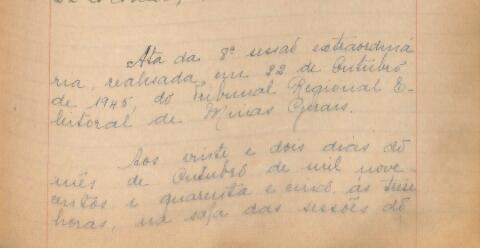 Ata da 8ª sessaõ extraordiná
ria, realisada em 22 de Outubrô
de 1945, do Tribunal Regional E-
leitoral de Minas Gerais.
Aos vinte e dois dias dô
mês de Outubrô de mil nove-
centos e quarenta e cincô, ás trese
horas, na sala das sessões dô